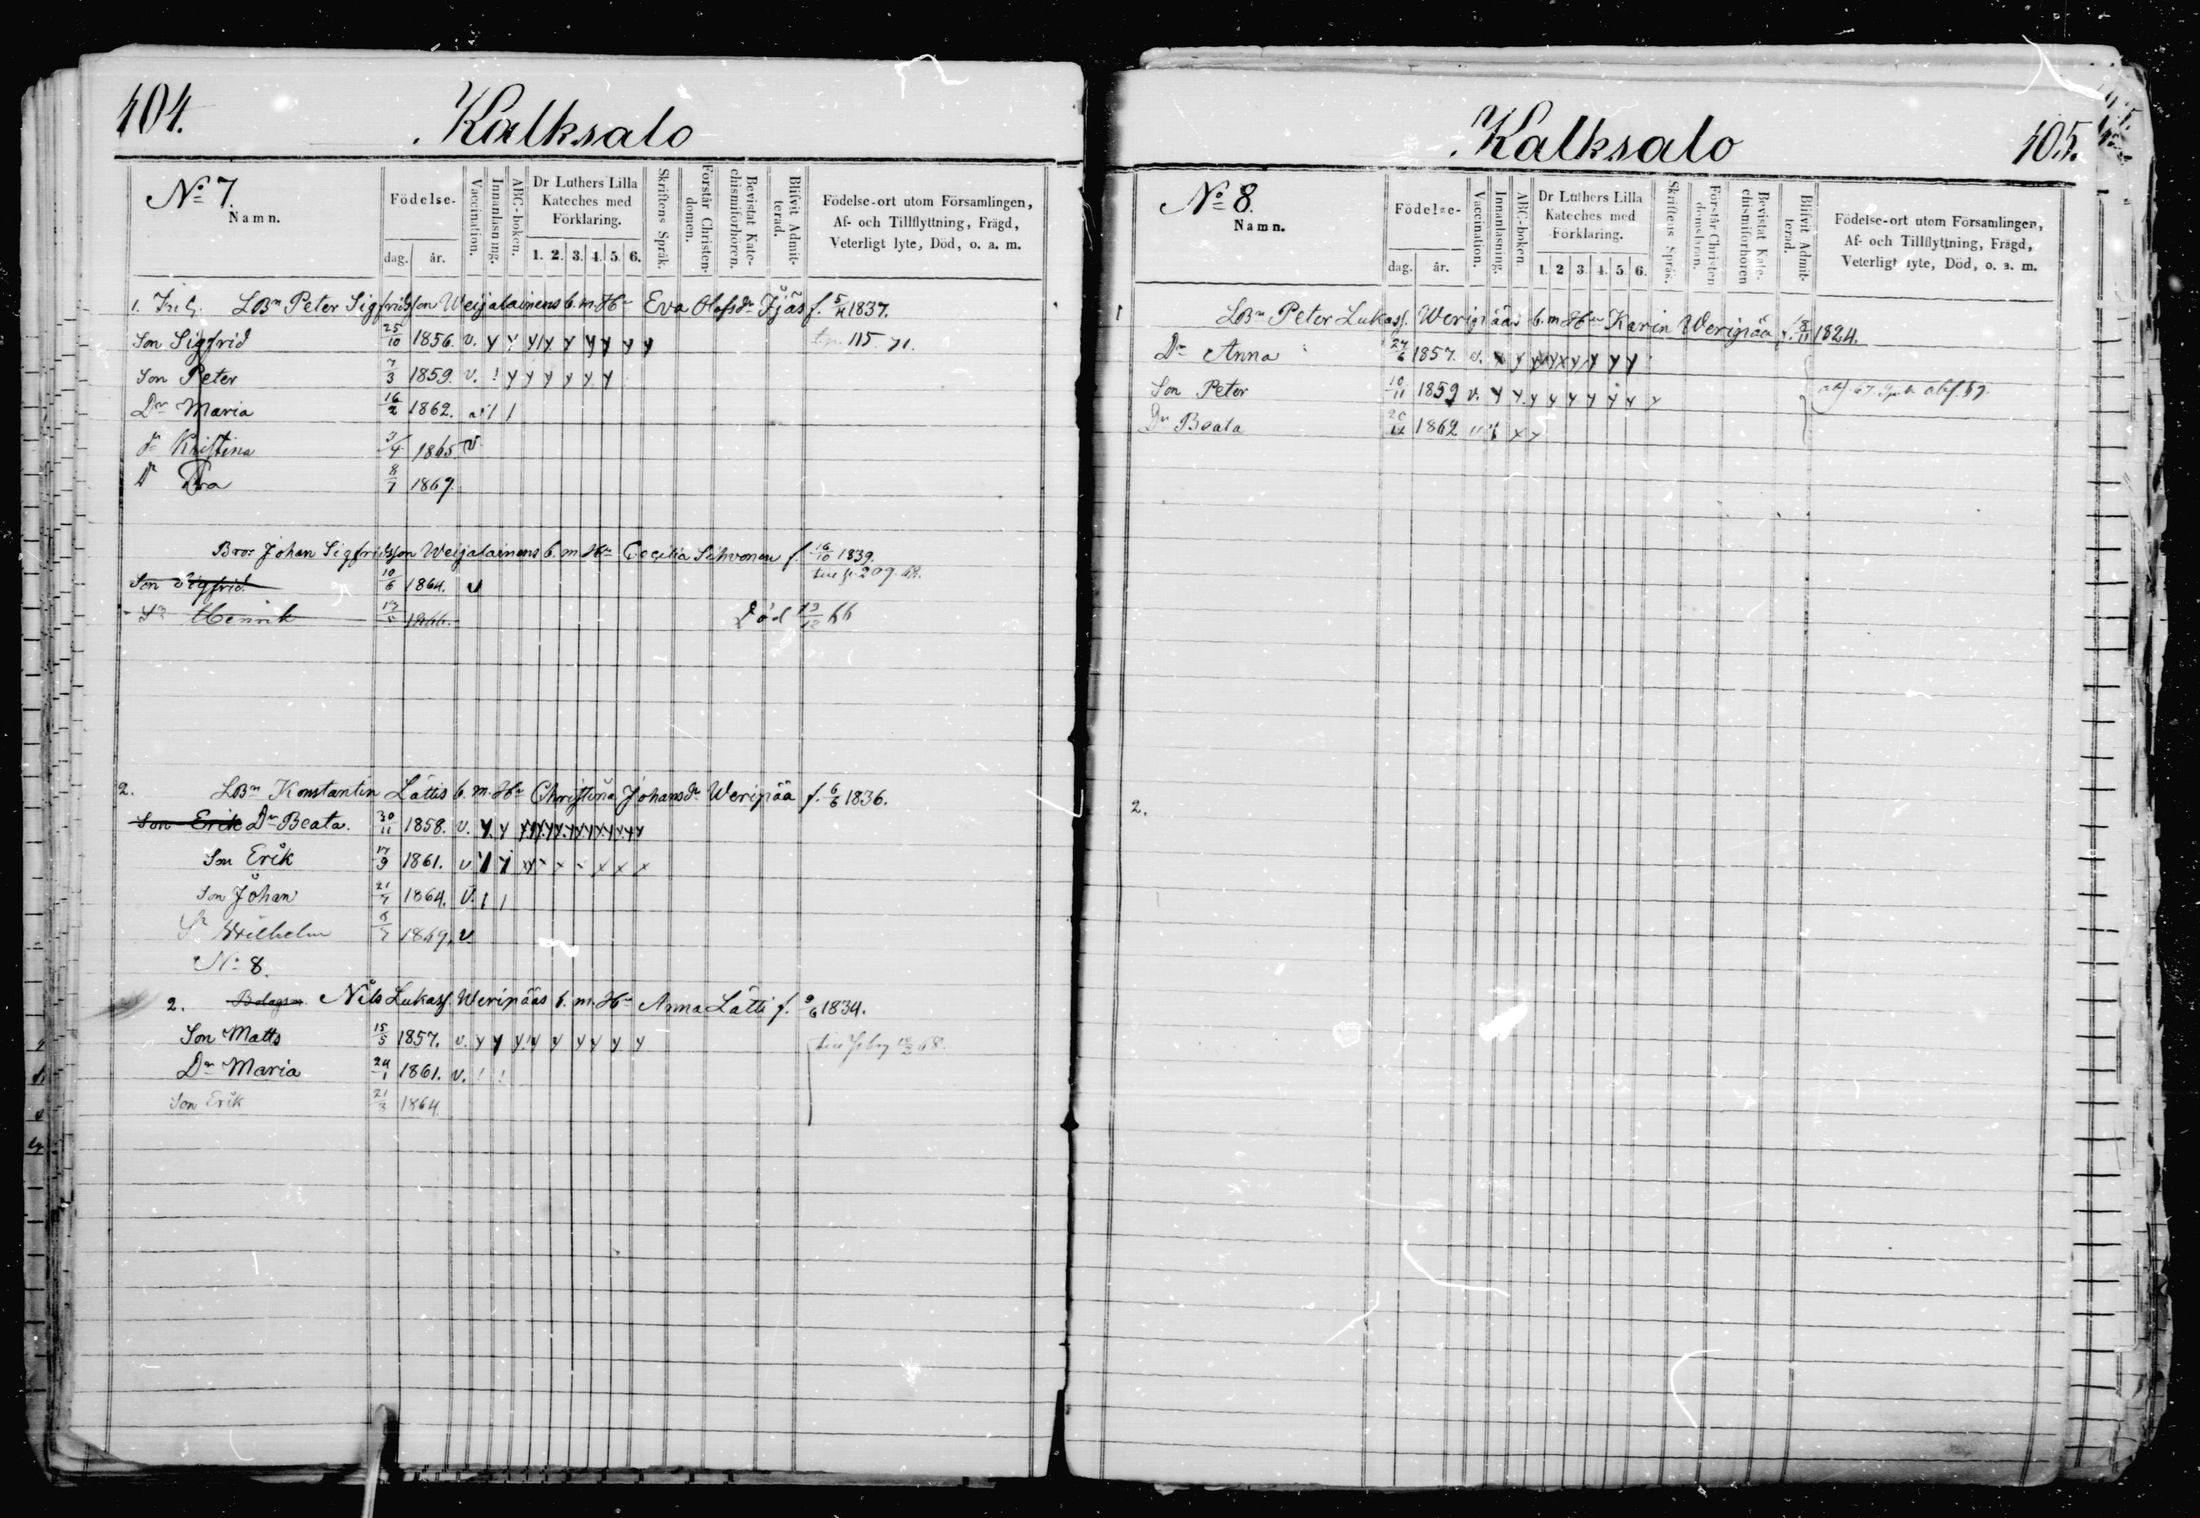 104.
Kalksalo
No 7.
Namn.
Födelse-
dag.
år.
Vaccination.
Innanläsning.
ABC-boken.
Dr Luthers Lilla
Kateches med
Förklaring.
1. 2. 3. 4. 5. 6.
Skriftens Språk.
Förstår Christen-
domen.
Bevistat Kate-
chismiförhören.
Blifvit Admit-
terad.
Födelse-ort utom Församlingen,
Af- och Tillflyttning, Frägd,
Veterligt lyte, Död, o. a. m.
1. LBn Peter Sigfridsson Weijalainens b. m. Hu Eva Olofsdr f. 5/4 1837.
Son Sigfrid 25/10 1856. v. y y y y y y y y y 115. 71.
Son Peter 7/3 1859. v. ! y y y y y y
Dr Maria 16/2 1862.
Dr Kristina 1865. v
Dr 8/7 1869.
Bror Johan Sigfridsson Weijalainens b. m. Hu Cecilia Sihvonen f. 16/10 1839.
209. 68.
Son Sigfrid. 10/6 1864. v
Sn Henrik 1866. Död 66
2. LBn Konstantin Lättis b. m. Hu Christina Johansdr Weripää f. 6/6 1836.
Son Erik Dr Beata. 30/11 1858. v.
Son Erik 17/9 1861. v
Son Johan 21/7 1864. v.
Sn Wilhelm 6/7 1869. v
No 8.
2. Bolagsm. Nils Lukass. Weripääs b. m. Hu Anna Lätti f. 9/6 1834.
Son Matts 15/5 1857. v. y y y y y y y y y 68.
Dr Maria 24/1 1861. v. ! !
Son Erik 21/3 1864
Kalksalo
105.
No 8.
Namn.
Födelse-
dag.
år.
Vaccination.
Innanläsning.
ABC-boken.
Dr Luthers Lilla
Kateches med
Förklaring.
1. 2. 3. 4. 5. 6.
Skriftens Språk.
Förstår Christen
domslåran.
Bevistat Kate-
chismiförhören
Blifvit Admit-
terad.
Födelse-ort utom Församlingen,
Af- och Tillflyttning, Frägd,
Veterligt lyte, Död, o. a. m.
1 LBn Peter Lukass. Weripääs b. m. Hu Karin Weripää f. 8/11 1824.
Dr Anna 27/6 1857. v.
Son Peter 10/11 1859 v. y y y y y y y y y
Dr Beata 1862
2.